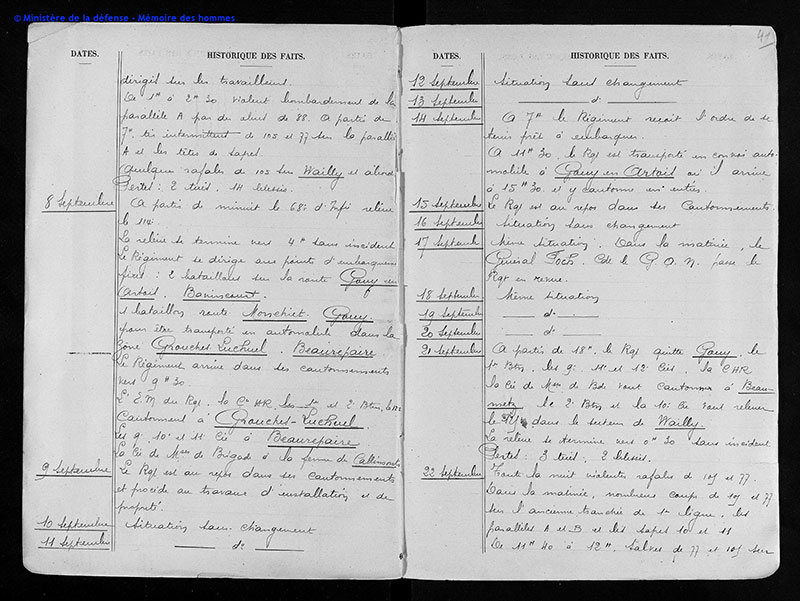 © Ministère de la défense - Mémoire des hommes
DATES.
HISTORIQUE DES FAITS.
dirigés sur les travailleurs.
De 1H à 2H30 violent bombardement de la
parallèle A par des obus de 88. A partir de
7H, tir intermittent de 105 et 77 sur la parallèle
A et les têtes de sapes.
Quelques rafales de 105 sur Wailly et abords
Pertes : 2 tués. 14 blessés.
8 Septembre
A partir de minuit le 68e d'Infie relève
le 114e
La relève se termine vers 4H sans incident
Le Régiment se dirige aux points d'embarquement
fixés : 2 bataillons sur la route Gouy en
Artois. Bavincourt.
1 bataillon route Monchiet. Gouy.
pour être transporté en automobile dans la
zône Grouches Luchuel. Beaurepaire
Le Régiment arrive dans ses cantonnements
vers 9H30.
L'E.M du Rgt. la Cie HR, les 1er et 2e Btns, la 12e
Cantonnent à Grouches-Luchuel.
Les 9e, 10e et 11e Cies à Beaurepaire
La Cie de Mses de Brigade à la ferme de
9 Septembre
Le Rgt est au repos dans ses cantonnements
et procède au travaux d'installation et de
propreté.
10 Septembre
Situation sans changement
11 Septembre
do
41
DATES.
HISTORIQUE DES FAITS.
12 Septembre
Situation sans changement
13 Septembre
do
14 Septembre
A 7H le Régiment reçoit l'ordre de se
tenir prêt à embarquer.
A 11H30, le Rgt est transporté en convoi auto-
mobile à Gouy en Artois où il arrive
à 15H30. il y cantonne en entier.
15 Septembre
Le Rgt est au repos dans ses Cantonnements.
16 Septembre
Situation sans changement
17 Septemb
Même situation. Dans la matinée, le
Général Foch. Cdt le G.O.N. passe le
Rgt en revue.
18 Septembre
Même situation
19 Septembre
do
20 Septembre
do
21 Septembre
A partir de 18H, le Rgt quitte Gouy, le
1er Btn, les 9e, 11e et 12e Cies, la CHR
la Cie de Mses de Bde vont cantonner à Beau-
metz le 2e Btn et la 10e Cie vont relever
le dans le secteur de Wailly.
La relève se termine vers 0H30 sans incident
Pertes : 3 tués, 2 blessés.
22 Septembre
Toute la nuit violentes rafales de 105 et 77.
Dans la matinée, nombreux coups de 105 et 77
sur l'ancienne tranchée de 1re ligne, les
parallèles A et B et les sapes 10 et 11
De 11H40 à 12H, salves de 77 et 105 sur